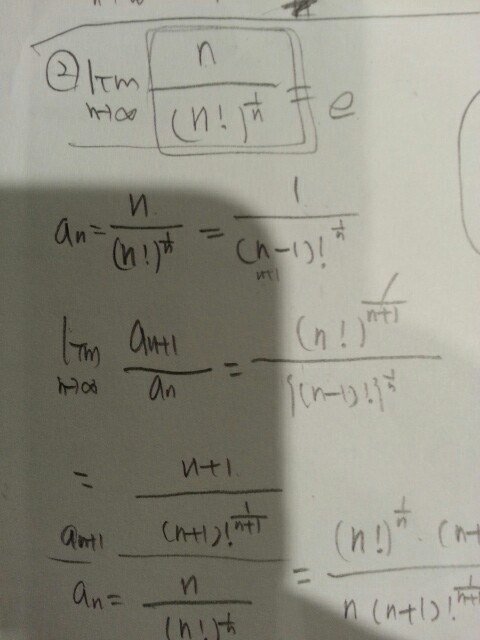 ② lim n→∞ n / (n!)^{1/n} = e
a_n = n / (n!)^{1/n} = 1 / (n-1)!^{1/n}
n+1
lim n→∞ a_{n+1} / a_n = (n!)^{1/(n+1)} / {(n-1)!}^{1/n}
= 
a_{n+1} / a_n = (n+1 / (n+1)!^{1/(n+1)}) / (n / (n!)^{1/n}) = (n!)^{1/n} · (n+ / n (n+1)!^{1/(n+1)}